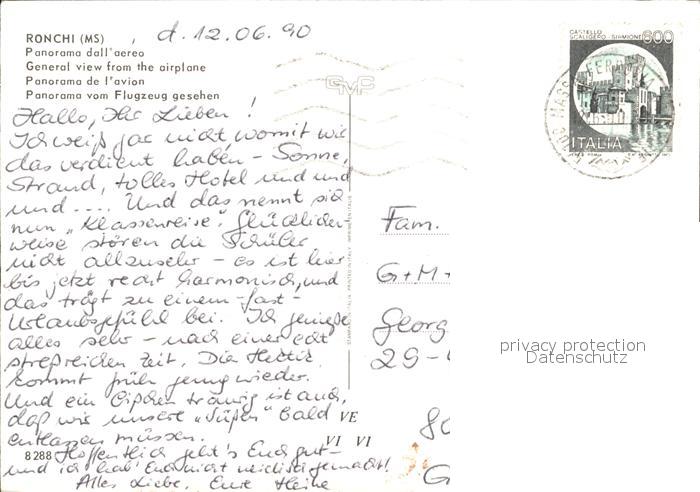 RONCHI (MS) , d. 12.06.90
Panorama dall'aereo
General view from the airplane
Panorama de l'avion
Panorama vom Flugzeug gesehen
Hallo, Ihr Lieben!
Ich weiß gar nicht, womit wir
das verdient haben - Sonne,
Strand, tolles Hotel und und
und .... Und das nennt sich
nun "Klassenreise". Glücklicher
weise stören die Schüler
nicht allzusehr - es ist hier
bis jetzt recht harmonisch, und
das trägt zu einem -fast-
Urlaubsgefühl bei. Ich genieße
alles sehr - nach einer echt
streßreichen Zeit. Die Hektik
kommt früh genug wieder.
Und ein bißchen traurig ist auch,
daß wir unsere "Süßen" bald
entlassen müssen.
Hoffentlich geht's Euch gut -
und ich hab' Euch nicht neidisch gemacht!
Alles Liebe, Eure Heike
VE
VI VI
8288
GMC
CASTELLO
SCALIGERO - SIRMIONE
600
ITALIA
Fam.
G+M+
Georg
29-
80
G
privacy protection
Datenschutz